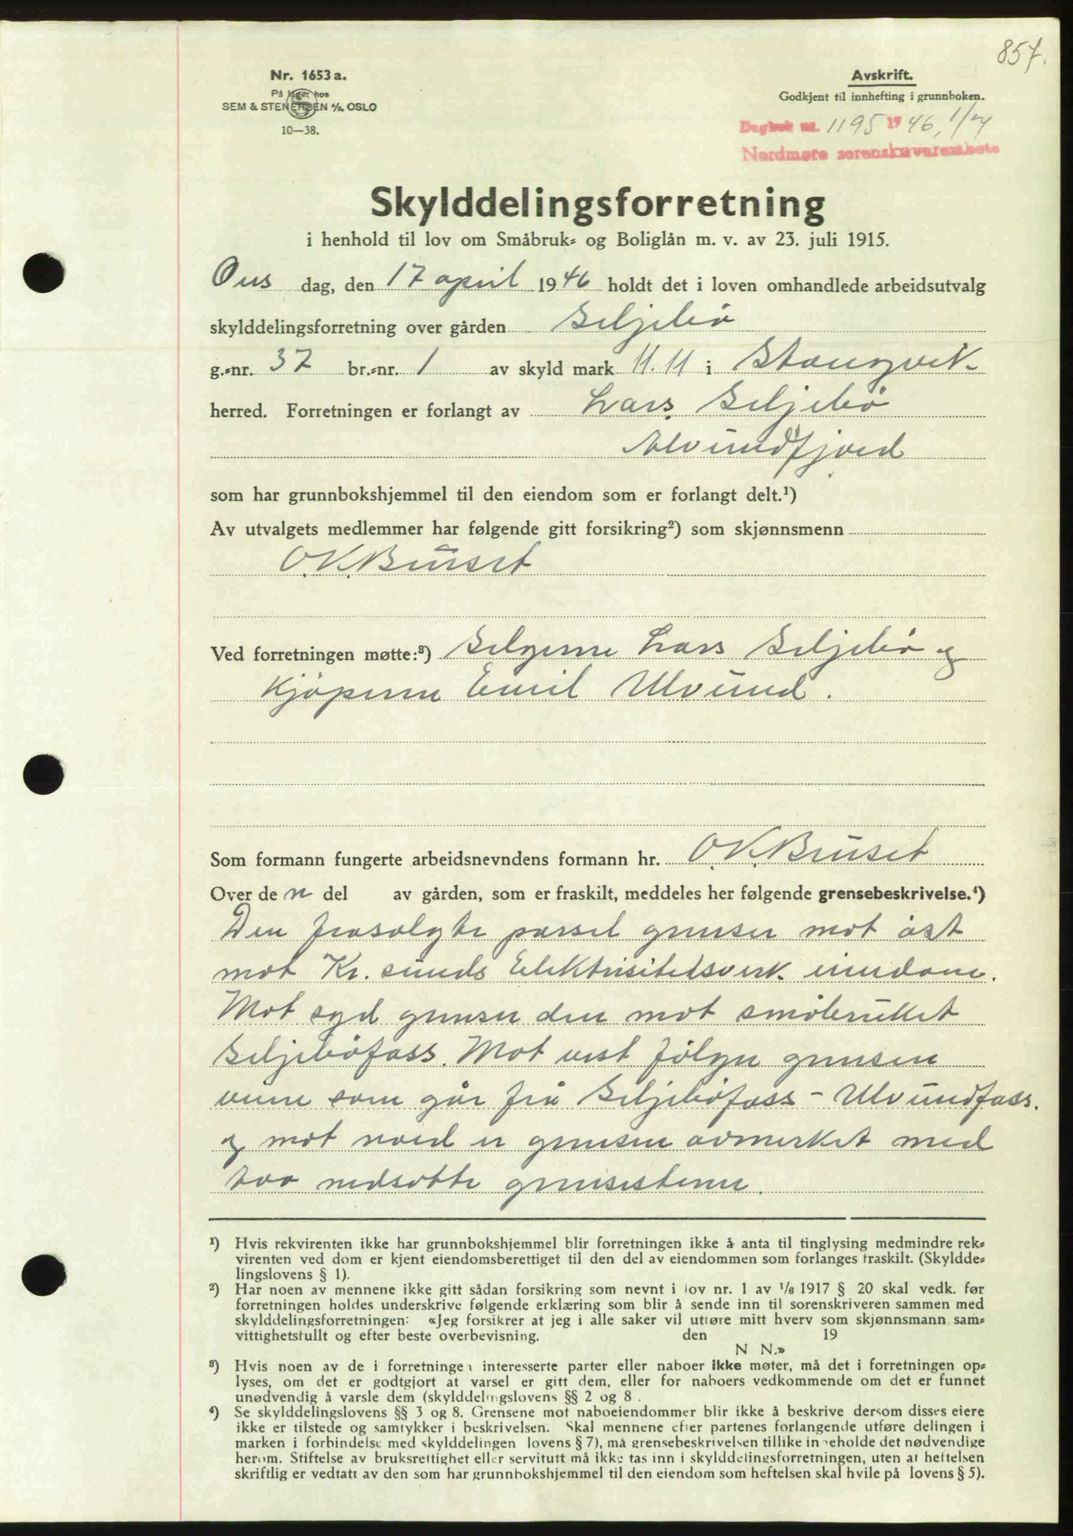 857.
Nr. 1653 a.
På lager hos
SEM & STENERSEN A/S, OSLO
10—38.
Avskrift.
Godkjent til innhefting i grunnboken.
Dagbok nr. 1195 1946, 1/7
Nordmøre sorenskriverembete
Skylddelingsforretning
i henhold til lov om Småbruk- og Boliglån m. v. av 23. juli 1915.
Ons dag, den 17 april 1946 holdt det i loven omhandlede arbeidsutvalg
skylddelingsforretning over gården Siljebø
g.-nr. 37 br.-nr. 1 av skyld mark 11.11 i Stangvik
herred. Forretningen er forlangt av Lars Siljebø
Alvundfjord
som har grunnbokshjemmel til den eiendom som er forlangt delt.¹)
Av utvalgets medlemmer har følgende gitt forsikring²) som skjønnsmenn
O.K. Bruset
Ved forretningen møtte:³) Selgeren Lars Siljebø og
Kjøperen Emil Ulvund.
Som formann fungerte arbeidsnevndens formann hr. O.K. Bruset
Over de n del av gården, som er fraskilt, meddeles her følgende grensebeskrivelse.⁴)
Den frasolgte parsel grenser mot øst
mot Kr. sunds Elektrisitetsverk eiendom.
Mot syd grenser den mot småbruket
Siljebøfoss. Mot vest følger grensen
veien som går fra Siljebøfoss - Ulvundfoss.
og mot nord er grensen avmerket med
too nedsatte grensestener.
¹) Hvis rekvirenten ikke har grunnbokshjemmel blir forretningen ikke å anta til tinglysing medmindre rek-
virenten ved dom er kjent eiendomsberettiget til den del av eiendommen som forlanges fraskilt. (Skyldde-
lingslovens § 1).
²) Har noen av mennene ikke gitt sådan forsikring som nevnt i lov nr. 1 av 1/8 1917 § 20 skal vedk. før
forretningen holdes underskrive følgende erklæring som blir å sende inn til sorenskriveren sammen med
skylddelingsforretningen: «Jeg forsikrer at jeg i alle saker vil utføre mitt hverv som skjønnsmann sam-
vittighetsfullt og efter beste overbevisning. den 19
N N.»
³) Hvis noen av de i forretningen interesserte parter eller naboer ikke møter, må det i forretningen op-
lyses, om det er godtgjort at varsel er gitt dem, eller for naboers vedkommende om det er funnet
unødvendig å varsle dem (skylddelingslovens §§ 2 og 8.
⁴) Se skylddelingslovens §§ 3 og 8. Grensene mot naboeiendommer blir ikke å beskrive dersom disses eiere
ikke er tilstede og samtykker i beskrivelsen. Skal mennene efter partenes forlangende utføre delingen i
marken i forbindelse med skylddelingen lovens § 7), må grensebeskrivelsen tillike inneholde det nødvendige
herom. Stiftelse av bruksrettighet eller servitutt må ikke tas inn i skylddelingsforretningen, uten at heftelsen
skriftlig er vedtatt av den som har grunnbokshjemmel til den eiendom som heftelsen skal hvile på lovens § 5).